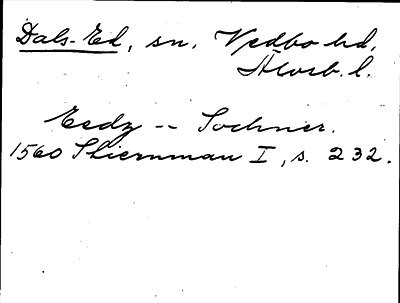 Dals-Ed, sn. Vedbo hd,
Älvsb. l.
Eedz -- Sochner.
1560 Stiernman I, s. 232.